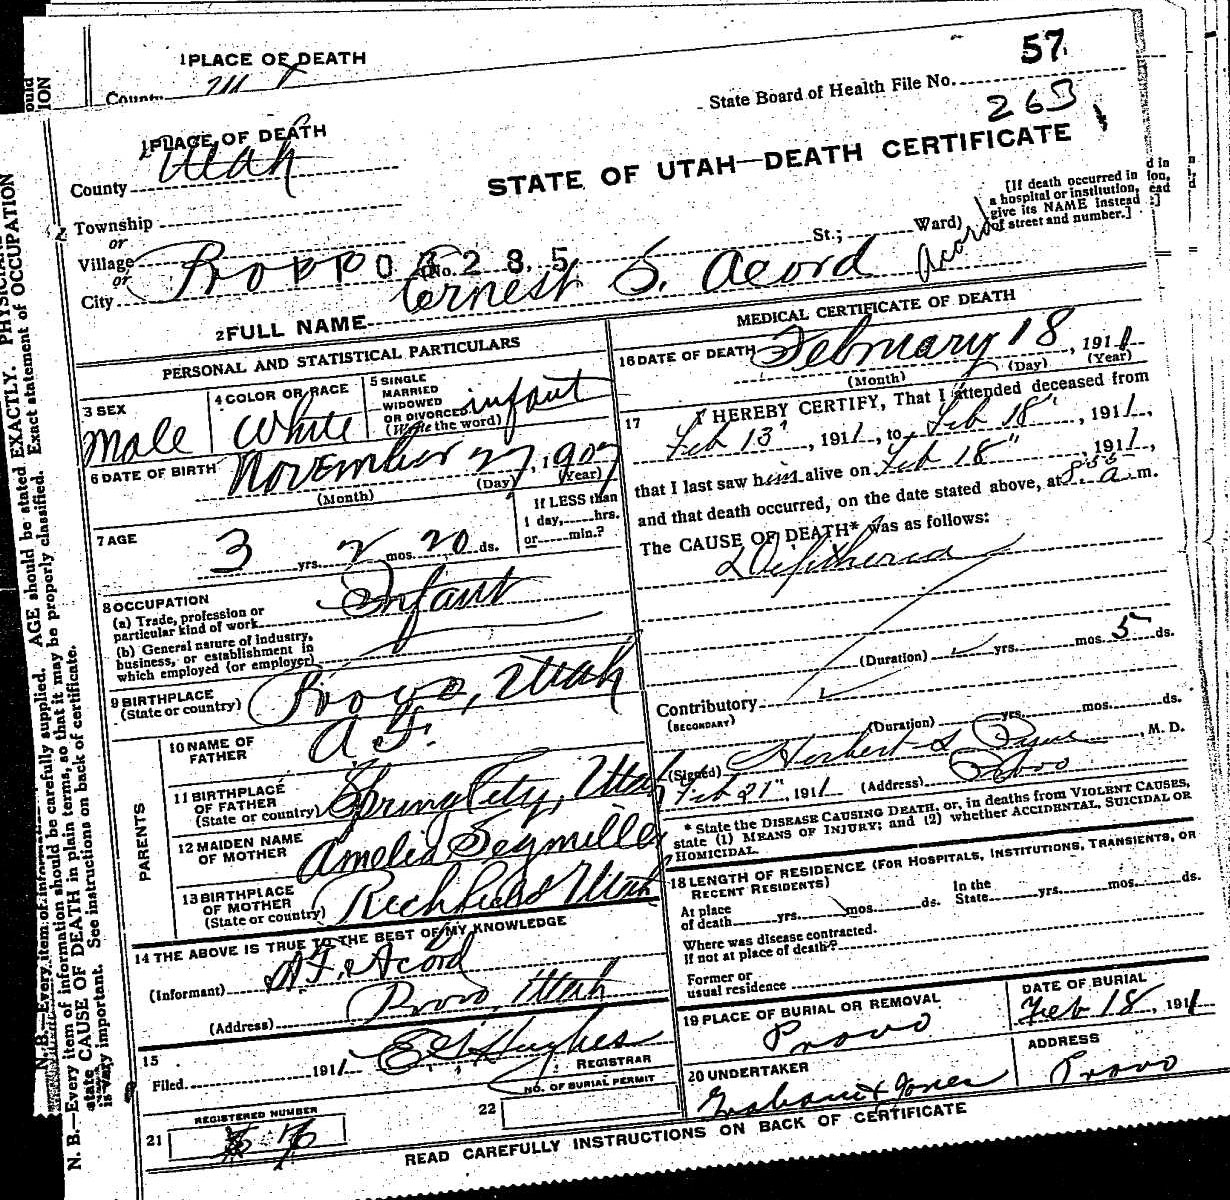 1 PLACE OF DEATH
County
State Board of Health File No. 57
263
1 PLACE OF DEATH
County Utah
STATE OF UTAH—DEATH CERTIFICATE
Township
or
Village
or
City Provo
No.
St.; Ward)
[If death occurred in a hospital or institution, give its NAME instead of street and number.]
0 2 8 5
Acord
2 FULL NAME Ernest S. Acord
PERSONAL AND STATISTICAL PARTICULARS
3 SEX
Male
4 COLOR OR RACE
White
5 SINGLE
MARRIED
WIDOWED
OR DIVORCED
(Write the word)
infant
6 DATE OF BIRTH
November 27, 1907
(Month) (Day) (Year)
7 AGE
3 yrs. 2 mos. 20 ds.
If LESS than
1 day,......hrs.
or......min.?
8 OCCUPATION
(a) Trade, profession or
particular kind of work
Infant
(b) General nature of industry,
business, or establishment in
which employed (or employer)
9 BIRTHPLACE
(State or country)
Provo, Utah
PARENTS
10 NAME OF
FATHER
A. F.
11 BIRTHPLACE
OF FATHER
(State or country)
Spring City, Utah
12 MAIDEN NAME
OF MOTHER
Amelia Segmiller
13 BIRTHPLACE
OF MOTHER
(State or country)
Richfield Utah
14 THE ABOVE IS TRUE TO THE BEST OF MY KNOWLEDGE
(Informant) A. F. Acord
(Address) Provo, Utah
15
Filed 1911 Hughes
REGISTRAR
REGISTERED NUMBER
21
22
NO. OF BURIAL PERMIT
MEDICAL CERTIFICATE OF DEATH
16 DATE OF DEATH February 18, 1911
(Month) (Day) (Year)
17 I HEREBY CERTIFY, That I attended deceased from
Feb 13", 1911, to Feb 18", 1911,
that I last saw him alive on Feb 18", 1911,
and that death occurred, on the date stated above, at 8:55 a m.
The CAUSE OF DEATH* was as follows:
Diphtheria
(Duration) yrs. mos. 5 ds.
Contributory
(SECONDARY)
(Duration) yrs. mos. ds.
(Signed) Herbert S Pyne, M. D.
Feb 21", 1911 (Address) Provo
* State the DISEASE CAUSING DEATH, or, in deaths from VIOLENT CAUSES,
state (1) MEANS OF INJURY; and (2) whether ACCIDENTAL, SUICIDAL OR
HOMICIDAL.
18 LENGTH OF RESIDENCE (FOR HOSPITALS, INSTITUTIONS, TRANSIENTS, OR
RECENT RESIDENTS)
At place
of death yrs. mos. ds.
In the
State yrs. mos. ds.
Where was disease contracted.
if not at place of death?
Former or
usual residence
19 PLACE OF BURIAL OR REMOVAL
Provo
DATE OF BURIAL
Feb 18, 1911
20 UNDERTAKER
Graham & Jones
ADDRESS
Provo
READ CAREFULLY INSTRUCTIONS ON BACK OF CERTIFICATE
N. B.—Every item of information should be carefully supplied. AGE should be stated EXACTLY. PHYSICIANS
state CAUSE OF DEATH in plain terms, so that it may be properly classified. Exact statement of OCCUPATION
is very important. See instructions on back of certificate.